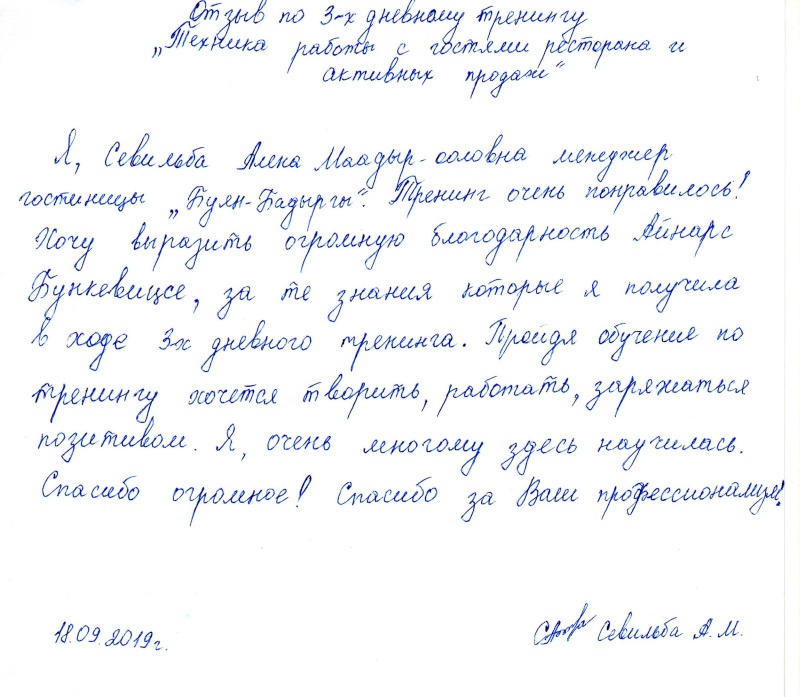 Отзыв по 3-х дневному тренингу
„Техника работы с гостями ресторана и
активных продаж"
Я, Севильба Алена Маадыр-ооловна менеджер
гостиницы „Буян-Бадыргы". Тренинг очень понравилось!
Хочу выразить огромную благодарность Айнарс
Бункевицсе, за те знания которые я получила
в ходе 3х дневного тренинга. Пройдя обучение по
тренингу хочется творить, работать, заряжаться
позитивом. Я, очень многому здесь научилась.
Спасибо огромное! Спасибо за Ваш профессионализм!
18.09.2019г.
Севильба А.М.